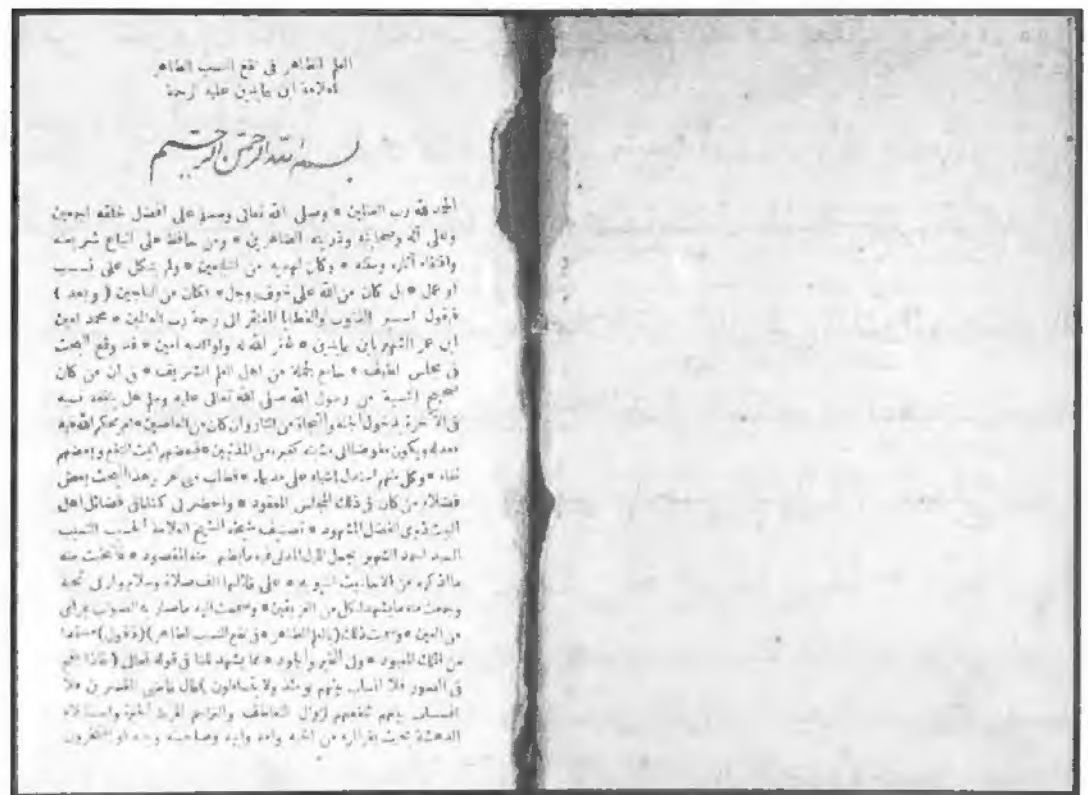 العلم الظاهر فى نفع النسب الطاهر
للعلامة ابن عابدين عليه الرحمة
بسم الله الرحمن الرحيم
الحمد لله رب العالمين * وصلى الله تعالى وسلم على افضل خلقه اجمعين
وعلى آله وصحابته وذريته الطاهرين * ومن حافظ على اتباع شريعته
واقتفاء آثاره وسننه * وكان لهديه من التابعين * ولم يتكل على نسب
او عمل * بل كان من الله على خوف ووجل * فكان من الناجين ( وبعد )
فيقول اسير الذنوب والخطايا المفتقر الى رحة رب العالمين * محمد امين
ابن عمر الشهير بابن عابدين * غفر الله له ولوالديه امين * قد وقع البحث
فى مجلس لطيف * جامع لجملة من اهل العلم الشريف * فى ان من كان
صحيح النسبة من رسول الله صلى الله تعالى عليه وسلم هل ينفعه نسبه
فى الآخرة بدخول الجنة والنجاة من النار وان كان من العاصين * ام حكم الله فيه
بعدله ويكون مفوضا الى مشيئته كغيره من المذنبين * فبعضهم اثبت النفع وبعضهم
نفاه * وكل منهم استدل باشياء على مدعاه * فطلب منى تحرير هذا البحث بعض
فضلاء من كان فى ذلك المجلس المعقود * واحضر لى كتابا فى فضائل اهل
البيت ذوى الفضل المشهود * تصنيف شيخه الشيخ العلامة الحسيب النسيب
السيد احمد الشهير بجمل الليل المدنى فيه ما ينظم منه المقصود * فانتخبت منه
ما اذكره من الاحاديث النبوية * على قائلها الف صلاة وسلام وازكى تحية
وجمعت منه ما يشهد لكل من الفريقين * وضممت اليه ما صار به الصواب مرأى
من العين * وسميت ذلك ( بالعلم الظاهر * فى نفع النسب الطاهر ) ( فاقول )
من الملك المعبود * ولى الخير والجود * مما يشهد لنا فى قوله تعالى ( فاذا نفخ
فى الصور فلا انساب بينهم يومئذ ولا يتساءلون ) قال قاضى المفسرين فلا
انساب بينهم تنفعهم لزوال التعاطف والتراحم لفرط الحيرة واستيلاء
الدهشة بحيث يفر المرء من اخيه وامه وابيه وصاحبته وبنيه او يفتخرون